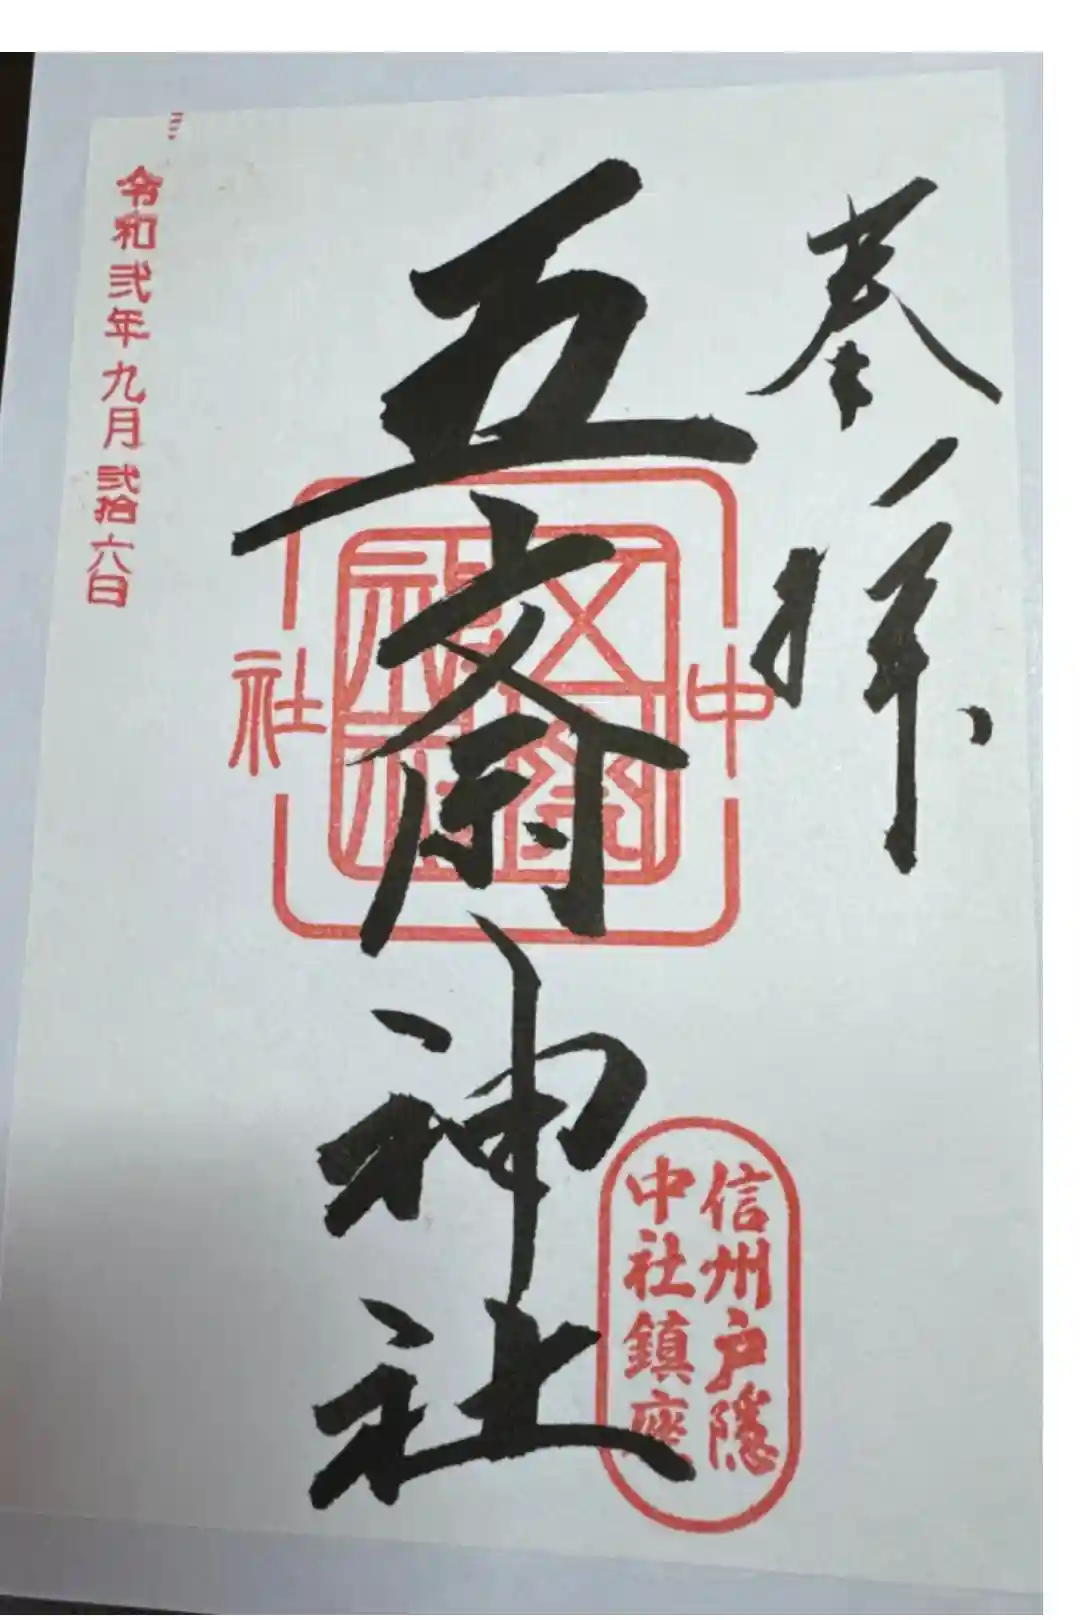 奉拝
五斎神社
中
社
五斎
神社
信州戸隠
中社鎮座
令和弐年九月弐拾六日